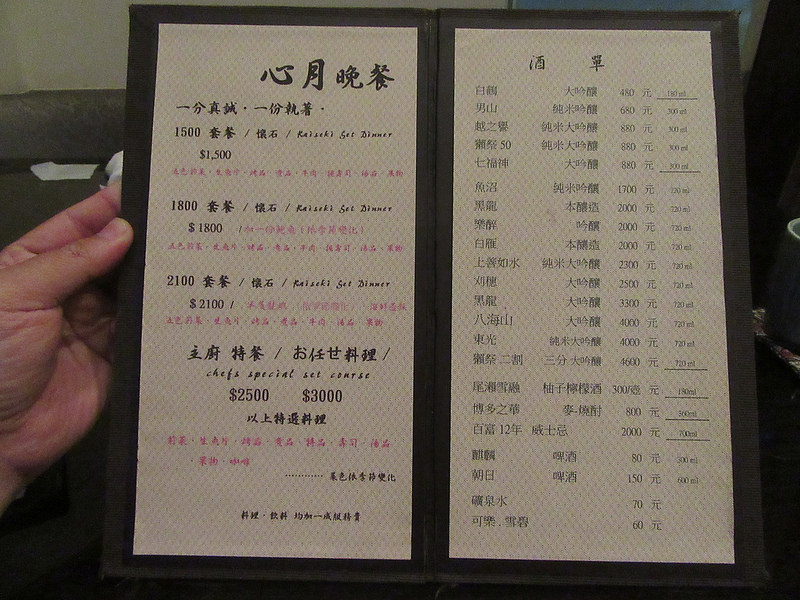 心月晚餐
一分真誠·一份執著·
1500 套餐 / 懷石 / Kaiseki Set Dinner
$1,500
五色前菜·生魚片·烤品·煮品·牛肉·握壽司·湯品·果物
1800 套餐 / 懷石 / Kaiseki Set Dinner
$1800 /加一份鮑魚(依季節變化)
五色前菜·生魚片·烤品·煮品·牛肉·握壽司·湯品·果物
2100 套餐 / 懷石 / Kaiseki Set Dinner
$2100 / (依季節變化)
五色前菜·生魚片·烤品·煮品·牛肉·湯品·果物
主廚 特餐 / お任せ料理 /
chefs special set course
$2500 $3000
以上特選料理
前菜·生魚片·烤品·煮品·特品·壽司·湯品
·果物·咖啡
············菜色依季節變化
料理·飲料 均加一成服務費
酒 單
白鶴 大吟釀 480 元 180 ml
男山 純米吟釀 680 元 300 ml
越之譽 純米大吟釀 880 元 300 ml
獺祭50 純米大吟釀 880 元 300 ml
七福神 大吟釀 880 元 300 ml
魚沼 純米吟釀 1700 元 720 ml
黑龍 本釀造 2000 元 720 ml
樂醉 吟釀 2000 元 720 ml
白雁 本釀造 2000 元 720 ml
上善如水 純米大吟釀 2300 元 720 ml
刈穗 大吟釀 2500 元 720 ml
黑龍 大吟釀 3300 元 720 ml
八海山 大吟釀 4000 元 720 ml
東光 純米大吟釀 4000 元 720 ml
獺祭 二割 三分大吟釀 4600 元 720 ml
尾瀨雪融 柚子檸檬酒 300/壺 元 180ml
博多之華 麥-燒酎 800 元 360ml
百富12年 威士忌 2000 元 700ml
麒麟 啤酒 80 元 300 ml
朝日 啤酒 150 元 600 ml
礦泉水 70 元
可樂.雪碧 60 元